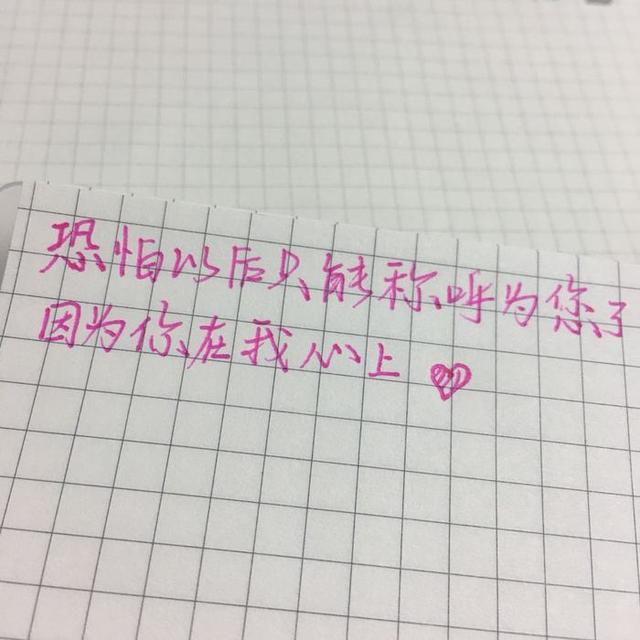 恐怕以后只能称呼为您了
因为你在我心上